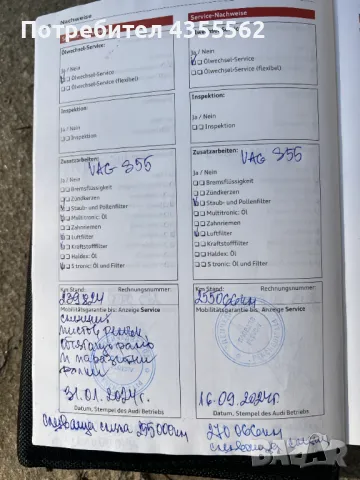 Потребител 4355552
Nachweise
Service-Nachweise
Ölwechsel-Service:
Ja / Nein
Ölwechsel-Service
Ölwechsel-Service (flexibel)
Inspektion:
Ja / Nein
Inspektion
Zusatzarbeiten:
VAG 855
Ja / Nein
Bremsflüssigkeit
Zündkerzen
Staub- und Pollenfilter
Multitronic: Öl
Zahnriemen
Luftfilter
Kraftstofffilter
Haldex: Öl
S tronic: Öl und Filter
Km Stand:
Rechnungsnummer:
239824
Mobilitätsgarantie bis: Anzeige Service
31.01.2024г.
Datum, Stempel des Audi Betriebs
следваща смяна 255000км
Ja / Nein
Ölwechsel-Service
Ölwechsel-Service (flexibel)
Inspektion:
Ja / Nein
Inspektion
Zusatzarbeiten:
VAG 855
Ja / Nein
Bremsflüssigkeit
Zündkerzen
Staub- und Pollenfilter
Multitronic: Öl
Zahnriemen
Luftfilter
Kraftstofffilter
Haldex: Öl
S tronic: Öl und Filter
Km Stand:
Rechnungsnummer:
255066км
Mobilitätsgarantie bis: Anzeige Service
16.09.2024г.
Datum, Stempel des Audi Betriebs
270066км
bazar